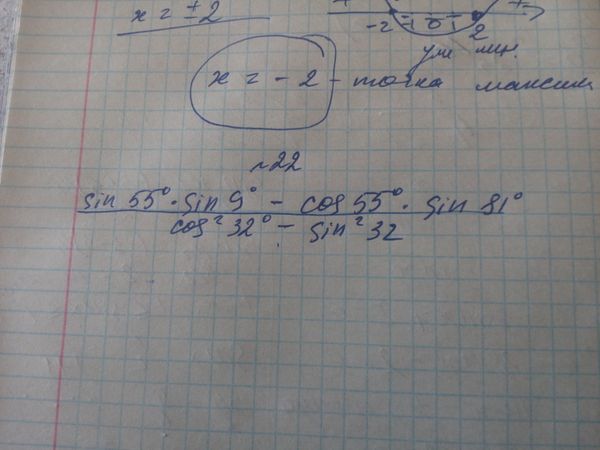 x = ± 2
-2 - 0 1 2 +
x = - 2 - точка максим
№22
sin 55° · sin 9° - cos 55° · sin 81°
cos² 32° - sin² 32